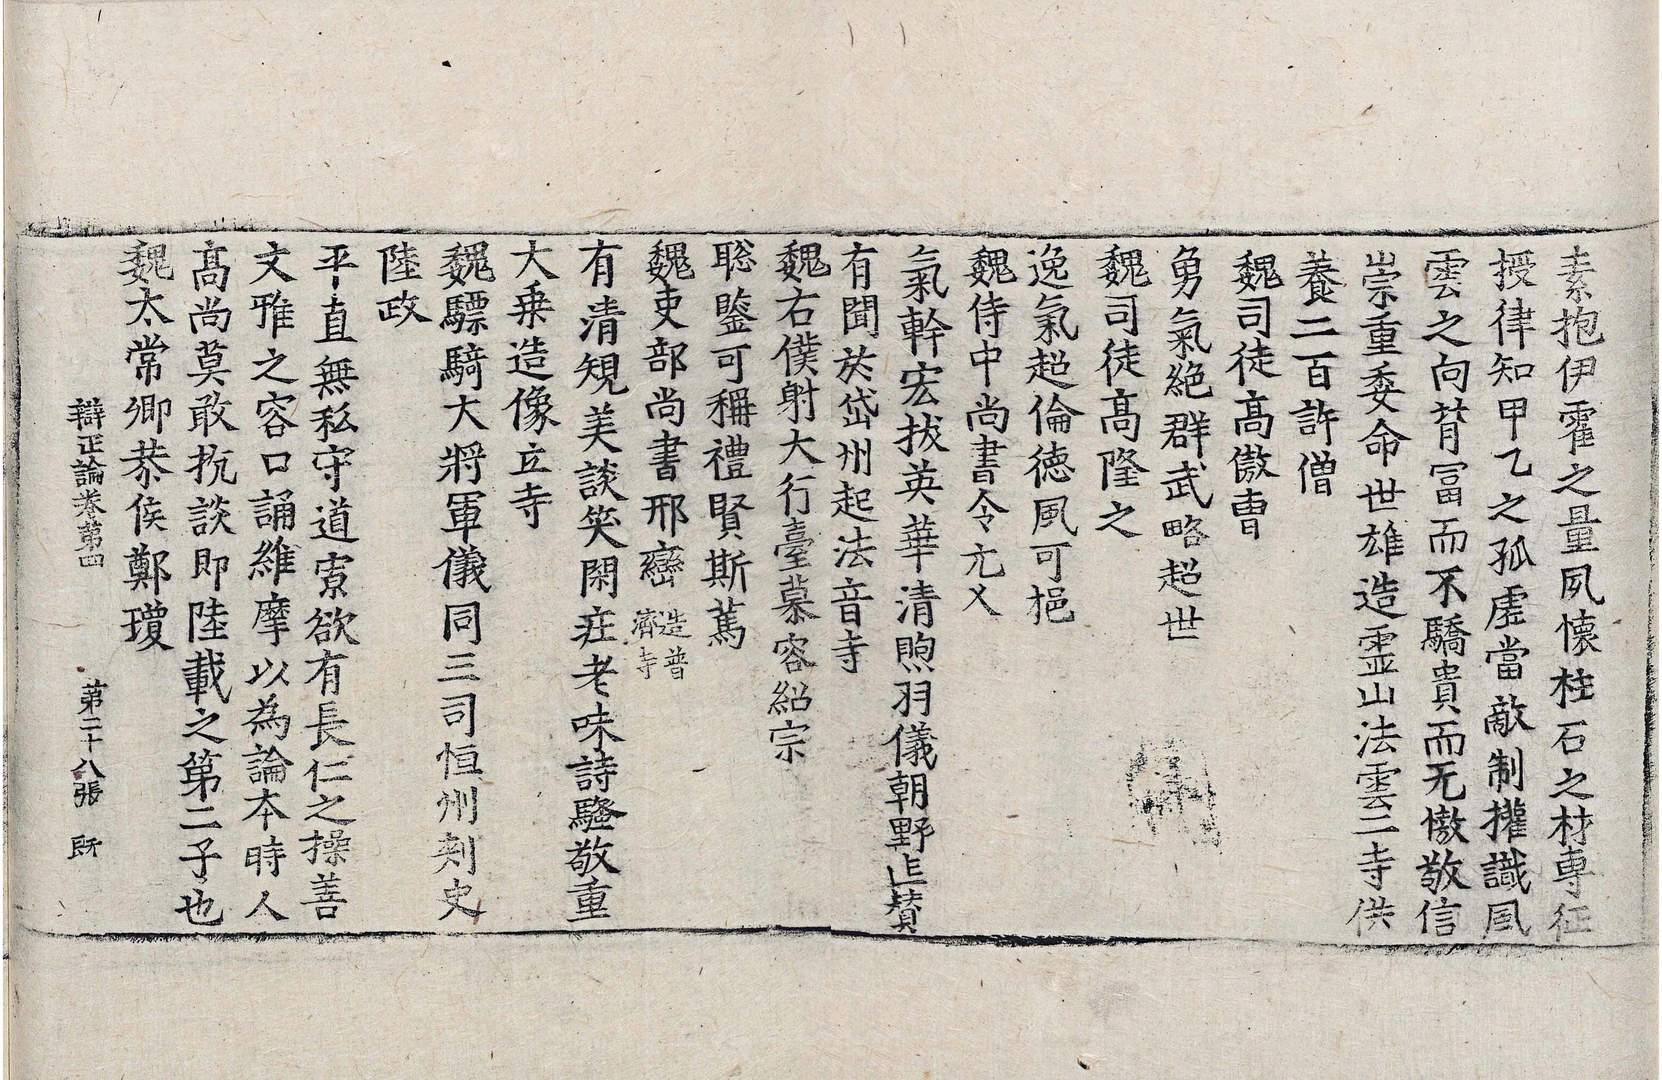 素抱伊霍之量夙懷柱石之材專征
授律知甲乙之孤虛當敵制權識風
雲之向背冨而不驕貴而无慠敬信
崇重委命世雄造霊山法雲二寺供
養二百許僧
魏司徒高傲曺
勇氣絶群武略超世
魏司徒高隆之
逸氣超倫徳風可挹
魏侍中尚書令元乂
氣幹宏拔英華清煦羽儀朝野𠯁賛
有聞於岱州起法音寺
魏右僕射大行臺慕容紹宗
聡鑒可稱禮賢斯篤
魏吏部尚書邢巒 造普濟寺
有清䂓美談笑閑疰老味詩騷敬重
大乗造像立寺
魏驃騎大將軍儀同三司恒州刺史
陸政
平直無私守道寡欲有長仁之操善
文雅之容口誦維摩以為論本時人
髙尚莫敢抗談即陸載之第二子也
魏太常卿恭侯鄭瓊
辯正論卷第四 第二十八張 所